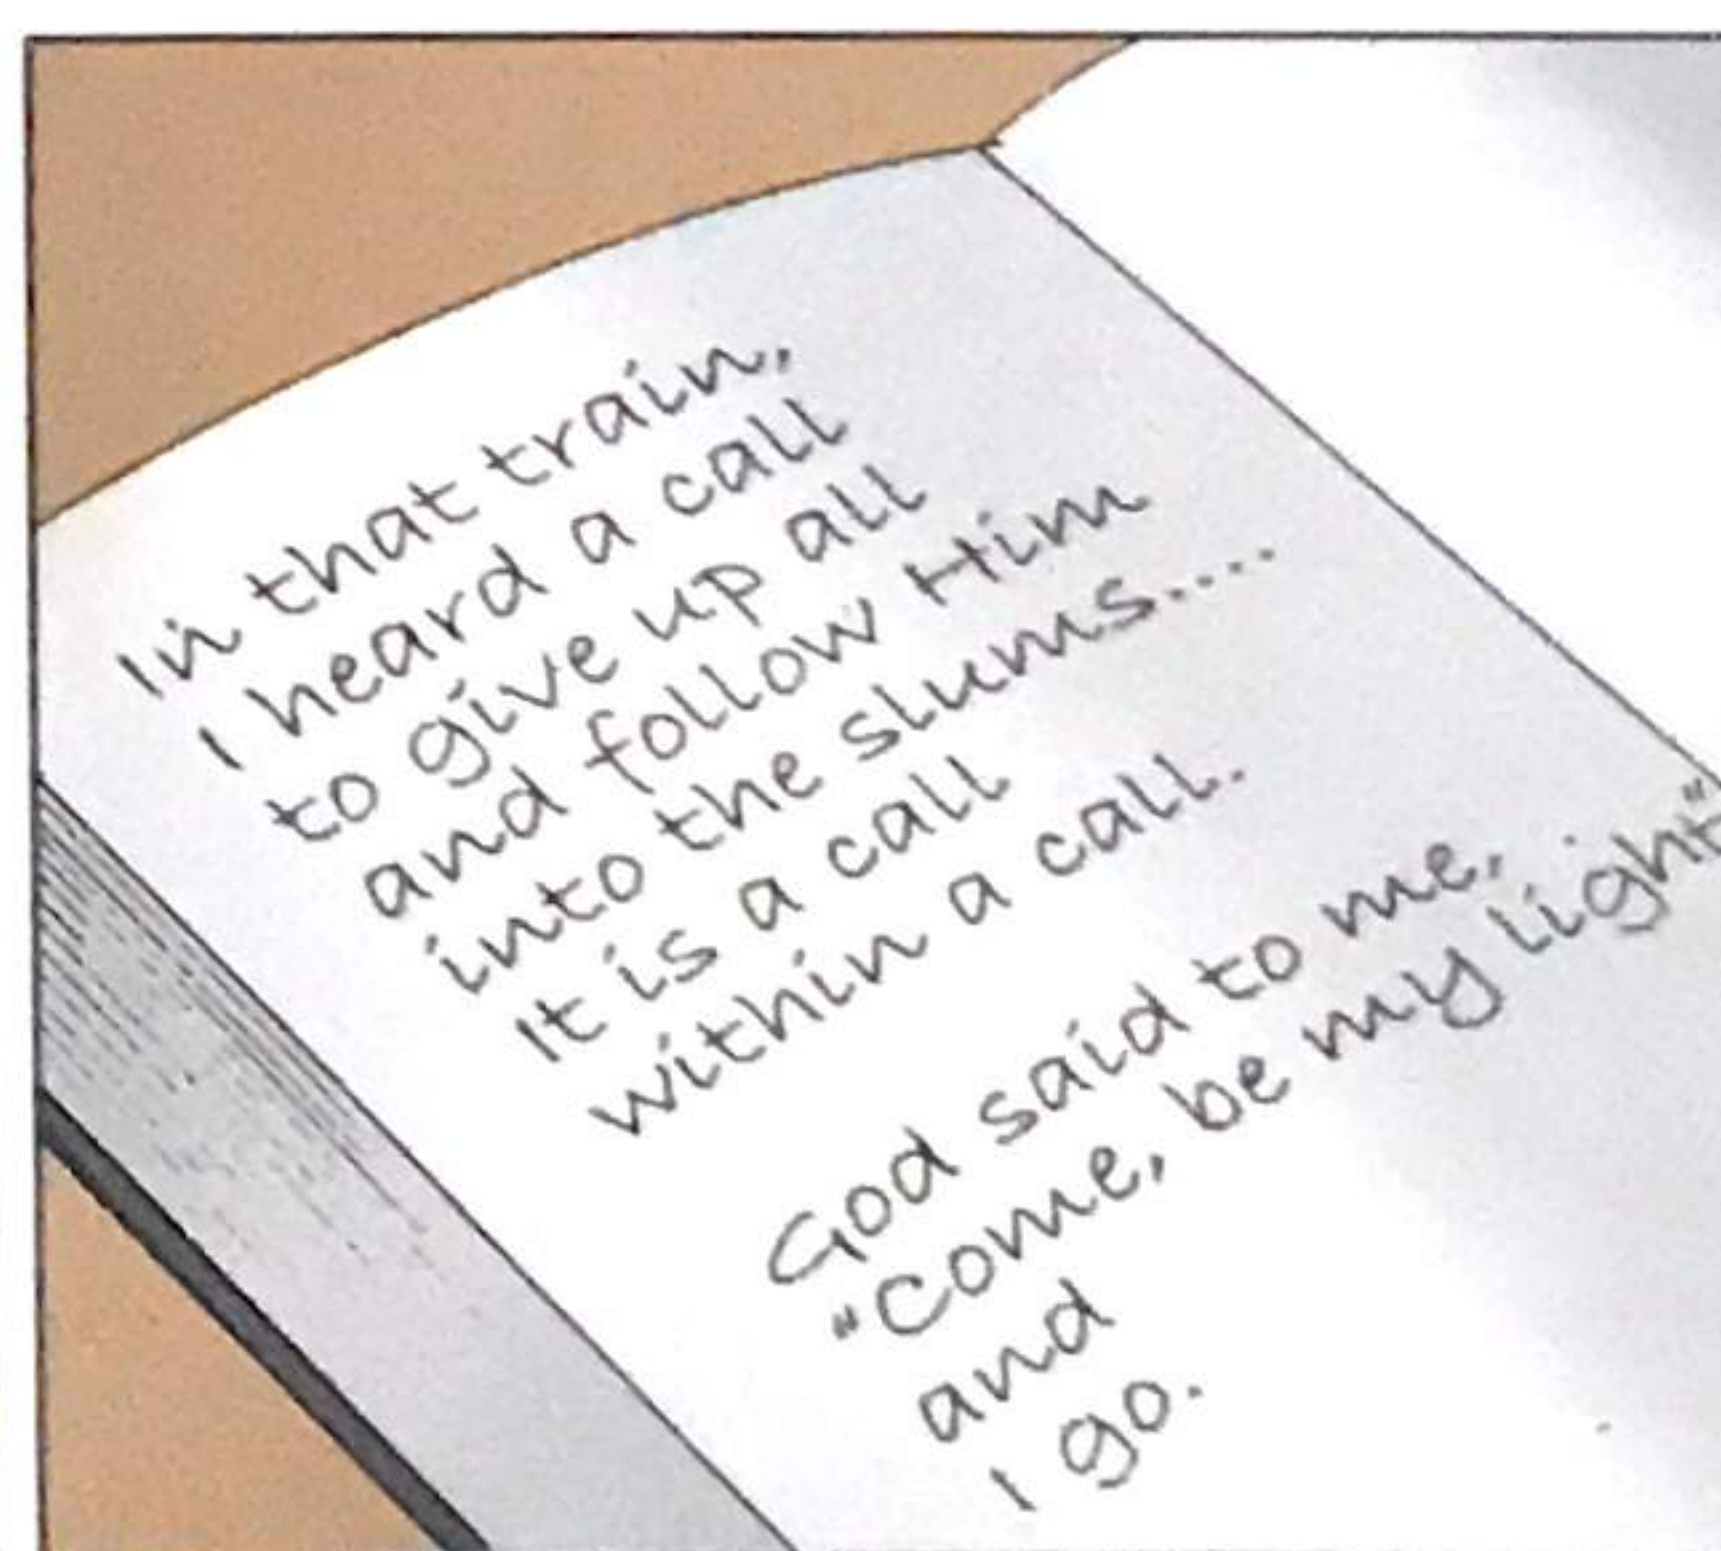 In that train,
I heard a call
to give up all
and follow Him
into the slums....
It is a call
within a call.
God said to me,
"Come, be my light"
and
I go.